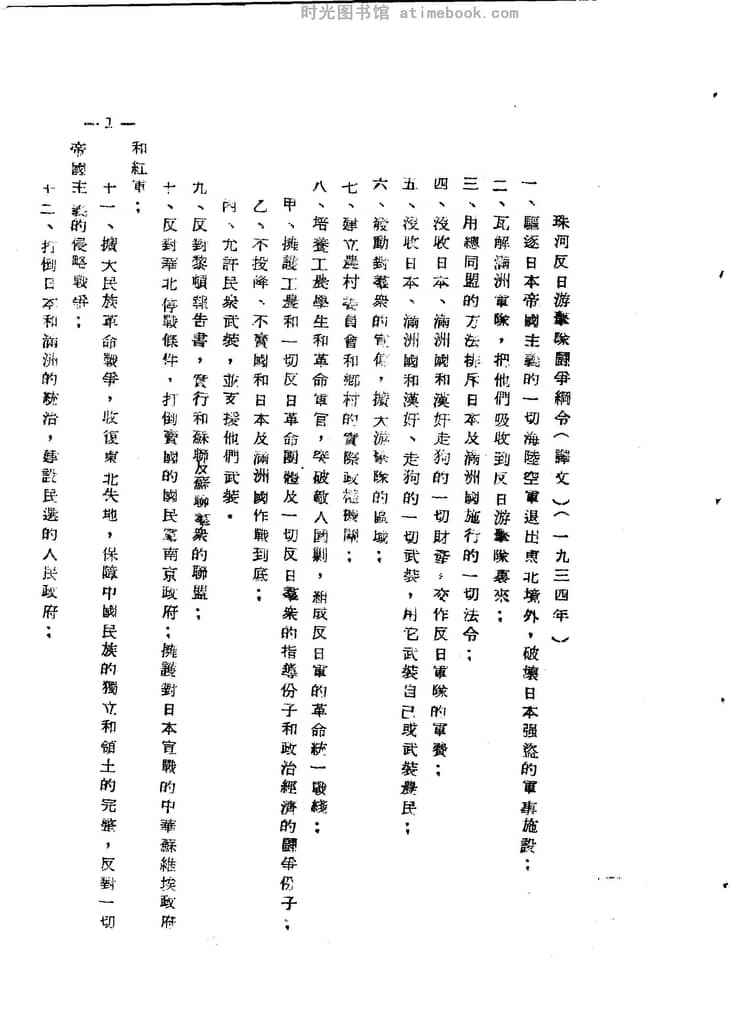 时光图书馆 atimebook.com
珠河反日游擊隊鬪爭綱令（譯文）（一九三四年）
一、驅逐日本帝國主義的一切海陸空軍退出東北境外，破壞日本强盜的軍事施設；
二、瓦解滿洲軍隊，把他們吸收到反日游擊隊裏來；
三、用總同盟的方法排斥日本及滿洲國施行的一切法令；
四、沒收日本、滿洲國和漢奸走狗的一切財產，交作反日軍隊的軍費；
五、沒收日本、滿洲國和漢奸、走狗的一切武裝，用它武裝自己或武裝農民；
六、發動對羣衆的宣傳，擴大游擊隊的區域；
七、建立農村委員會和鄉村的實際政權機關；
八、培養工農學生和革命軍官，突破敵人圍剿，組成反日軍的革命統一戰綫；
甲、擁護工農和一切反日革命團體及一切反日羣衆的指導份子和政治經濟的鬪爭份子；
乙、不投降、不賣國和日本及滿洲國作戰到底；
丙、允許民衆武裝，並支援他們武裝。
九、反對黎頓報告書，實行和蘇聯及蘇聯羣衆的聯盟；
十、反對華北停戰條件，打倒賣國的國民黨南京政府；擁護對日本宣戰的中華蘇維埃政府
和紅軍；
十一、擴大民族革命戰爭，收復東北失地，保障中國民族的獨立和領土的完整，反對一切
帝國主義的侵略戰爭；
十二、打倒日本和滿洲的統治，建設民選的人民政府；
—1—